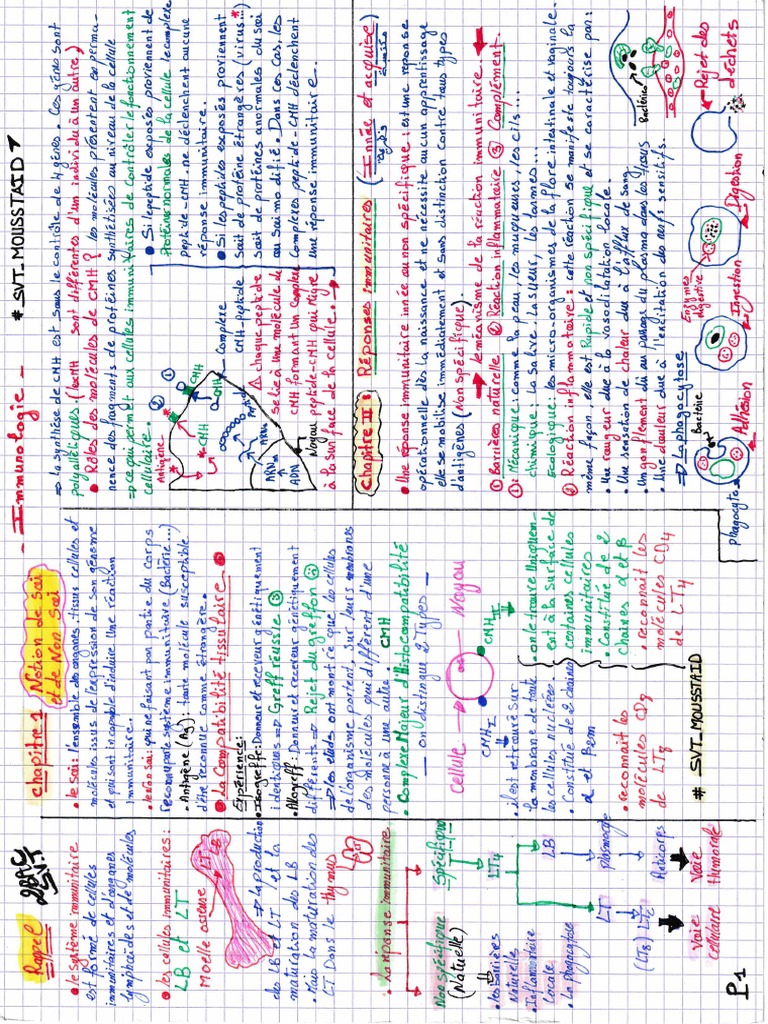 - Immunologie -
# SVT-MOUSSTAID
Rappel
2BAC
SVT
• le système immunitaire
est formé de cellules
immunitaires et d'organes
lymphoïdes et de molécules
• les cellules immunitaires:
LB et LT
Moelle osseuse
LT LB
⇒ la production
des LB et LT et la
maturation des LB
• Thymus la maturation des
LT Dans le thymus
• La réponse immunitaire
Non spécifique
(Naturelle)
Spécifique
• les barrières
Naturelle
• Inflammatoire
Locale
• La phagocytose
LT4
LT
LB
(LT8) LTc
plasmocyte
Anticorps
Voie
cellulaire
Voie
Humorale
P1
chapitre 1
Notion de Soi
et de Non Soi
• le soi: l'ensemble des organes, tissus cellules et
molécules issus de l'expression de son génome
et qui sont incapable d'induire une réaction
immunitaire.
• le Non soi: qui ne faisant pas partie du corps
Reconnu par le système immunitaire (Bactérie...)
• Antigène (Ag): toute molécule susceptible
d'être reconnue comme étrangère.
• La Compatibilité tissulaire.
Expérience:
• Isogreffe: Donneur et receveur génétiquement
identiques ⇒ Greff réussie
• Allogreff: Donneur et receveur génétiquement
différents ⇒ Rejet du greffon
⇒ les études ont montré que les cellules
de l'organisme portent, sur leurs membranes
des molécules qui diffèrent d'une
personne à une autre. CMH
• Complexe Majeur d'Histocompatibilité
- on distingue 2 Types -
cellule
Noyau
CMH I
CMH II
• il est retrouvé sur
la membrane de toute
les cellules nucléées.
• Constitué de 2 chaînes
α et B2m
• reconnait les
molécules CD8
de LT8
- on le trouve uniquem-
ent à la surface de
certaines cellules
immunitaires
• Constituée de 2
chaînes α et β
- reconnait les
molécules CD4
de LT4
# SVT-MOUSSTAID
⇒ La synthèse de CMH est sous le contrôle de 4 gènes. Ces gènes sont
polyalléliques (les CMH sont différentes d'un individu à un autre)
• Rôles des molécules de CMH? les molécules présentent en perma-
nence des fragments de protéines synthétisées au niveau de la cellule
⇒ ce qui permet aux cellules immunitaires de contrôler le fonctionnement
cellulaire.
Antigène
CMH
CMH
CMH
Complexe
CMH-peptide
ARNm
ARNm
ADN
Noyau
⚠ chaque peptide
se lie à une molécule de
CMH formant un complexe
peptide-CMH qui migre
à la surface de la cellule.
• Si le peptide exposés proviennent de
protéines normales de la cellule le complexe
peptide-CMH ne déclenchent aucune
réponse immunitaire.
• Si les peptides exposés proviennent
soit de protéine étrangères (virus...)
soit de protéines anormales du soi
au soi modifié. Dans ces cas, les
Complexes peptide-CMH déclenchent
une réponse immunitaire.
chapitre II:
Réponses immunitaires (Innée et acquise)
• Une réponse immunitaire innée ou non spécifique: est une réponse
opérationnelle dès la naissance et ne nécessite aucun apprentissage
elle se mobilise immédiatement et sans distinction contre tous types
d'antigènes (Non spécifique)
le mécanisme de la réaction immunitaire.
① Barrières naturelle ② Réaction inflammatoire ③ Complément.
①: Mécanique: comme la peau, les muqueuses, les cils...
chimique: La salive. La sueur, les larmes...
Ecologique: les micro-organismes de la flore intestinale et vaginale.
② Réaction inflammatoire: cette réaction se manifeste toujours la
même façon. elle est Rapide et non spécifique et se caractérise par:
• Une rougeur due à la vasodilatation locale.
• Une sensation de chaleur due à l'afflux de sang
• Un gonflement dû au passage du plasma dans les tissus
• Une douleur due à l'excitation des nerfs sensitifs.
⇒ La phagocytose
Bactérie
phagocyte
Adhésion
Ingestion
Enzymes
digestive
Digestion
Rejet des
déchets
Bactérie